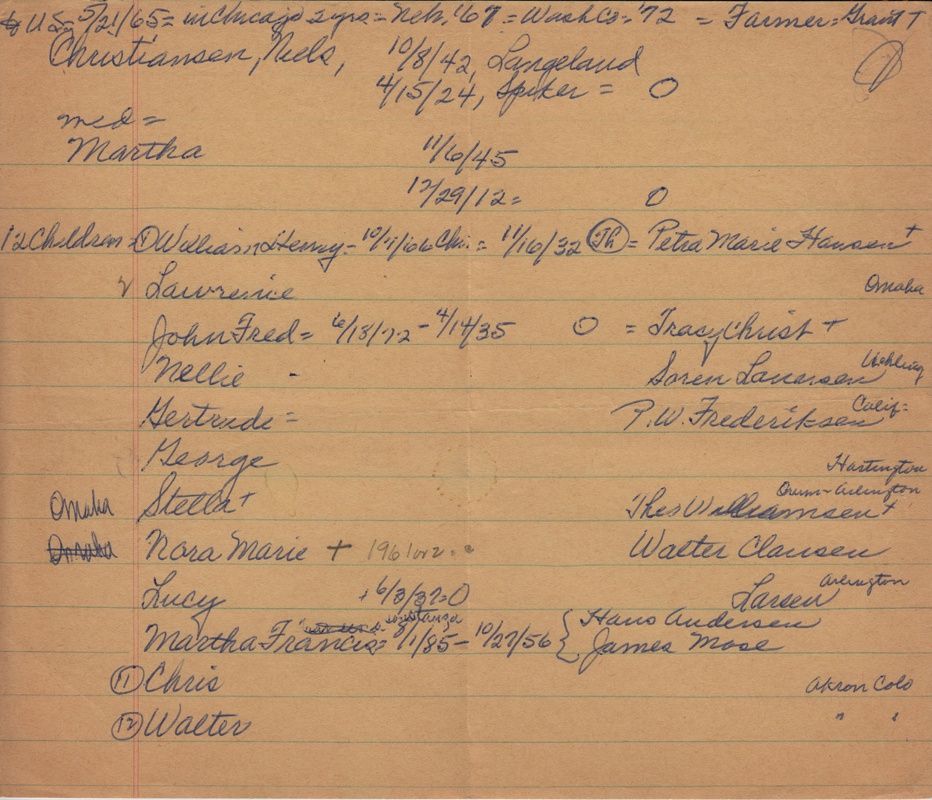 U.S. 5/21/65 = in Chicago 2 yrs = Neb. '67 = Wash Co = '72 = Farmer = Grant +
Christiansen, Niels, 10/8/42, Langeland
4/15/24, Spiker = O
md =
Martha 11/6/45
12/29/12 = O
12 Children = ① William Henry - Chi. = 11/16/32 Th = Petra Marie Hansen +
2 Lawrence Omaha
John Fred = 6/13/72 - 4/14/35 O = Tracy Christ +
Nellie - Soren Laursen Uehling
Gertrude = P.W. Frederiksen Calif =
George Hartington
Omaha Stella + Theo Williamsen + Orum - Arlington
Omaha Nora Marie + 1961 or 2 = Walter Clausen
Lucy + 6/3/37 = O Larsen Arlington
Martha Francis = 8/1/85 - 10/27/56 { Hans Andersen
James Mose
⑪ Chris Akron Colo
⑫ Walter " "